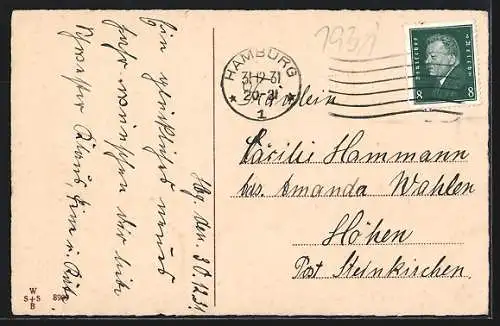 Hbg. den 30.12.31
Ein glückliches neues
Jahr wünschen dir liebe
Schwester Klaus, Tine u. Käte
1931
HAMBURG
31.12.31
20-21
* 1 *
Deutsches Reich
8 8
Fräulein
Cäcilie Hammann
bei Amanda Wahlen
Höhen
Post Steinkirchen
W
S+S
B